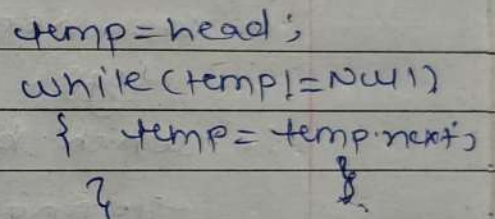 temp=head;
while(temp!=Null)
{ temp=temp.next;
}